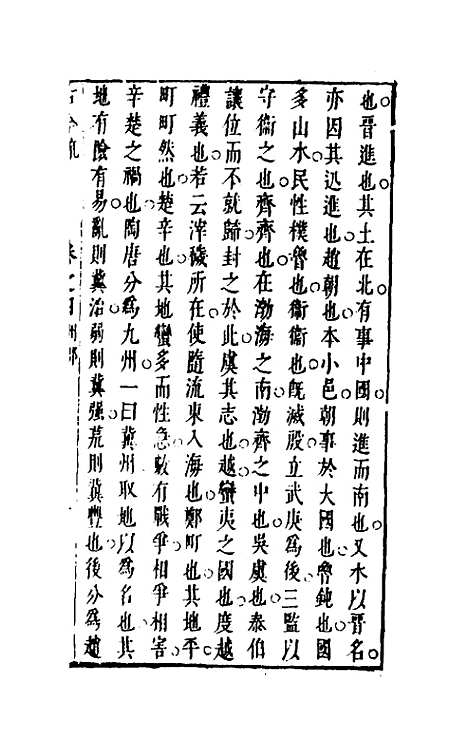 也晉進也其土在北有事中國則進而南也又水以晉名
亦因其迅進也趙朝也本小邑朝事於大國也魯鈍也國
多山水民性樸魯也衞衞也旣滅殷立武庚爲後三監以
守衞之也齊齊也在渤海之南渤齊之中也吳虞也泰伯
讓位而不就歸封之於此虞其志也越蠻夷之國也度越
禮義也若云滓穢所在使隨流東入海也鄭町也其地平
町町然也楚辛也其地蠻多而性急數有戰爭相爭相害
辛楚之禍也陶唐分爲九州一曰冀州取地以爲名也其
地有險有易亂則冀治弱則冀强荒則冀豐也後分爲趙
州郡